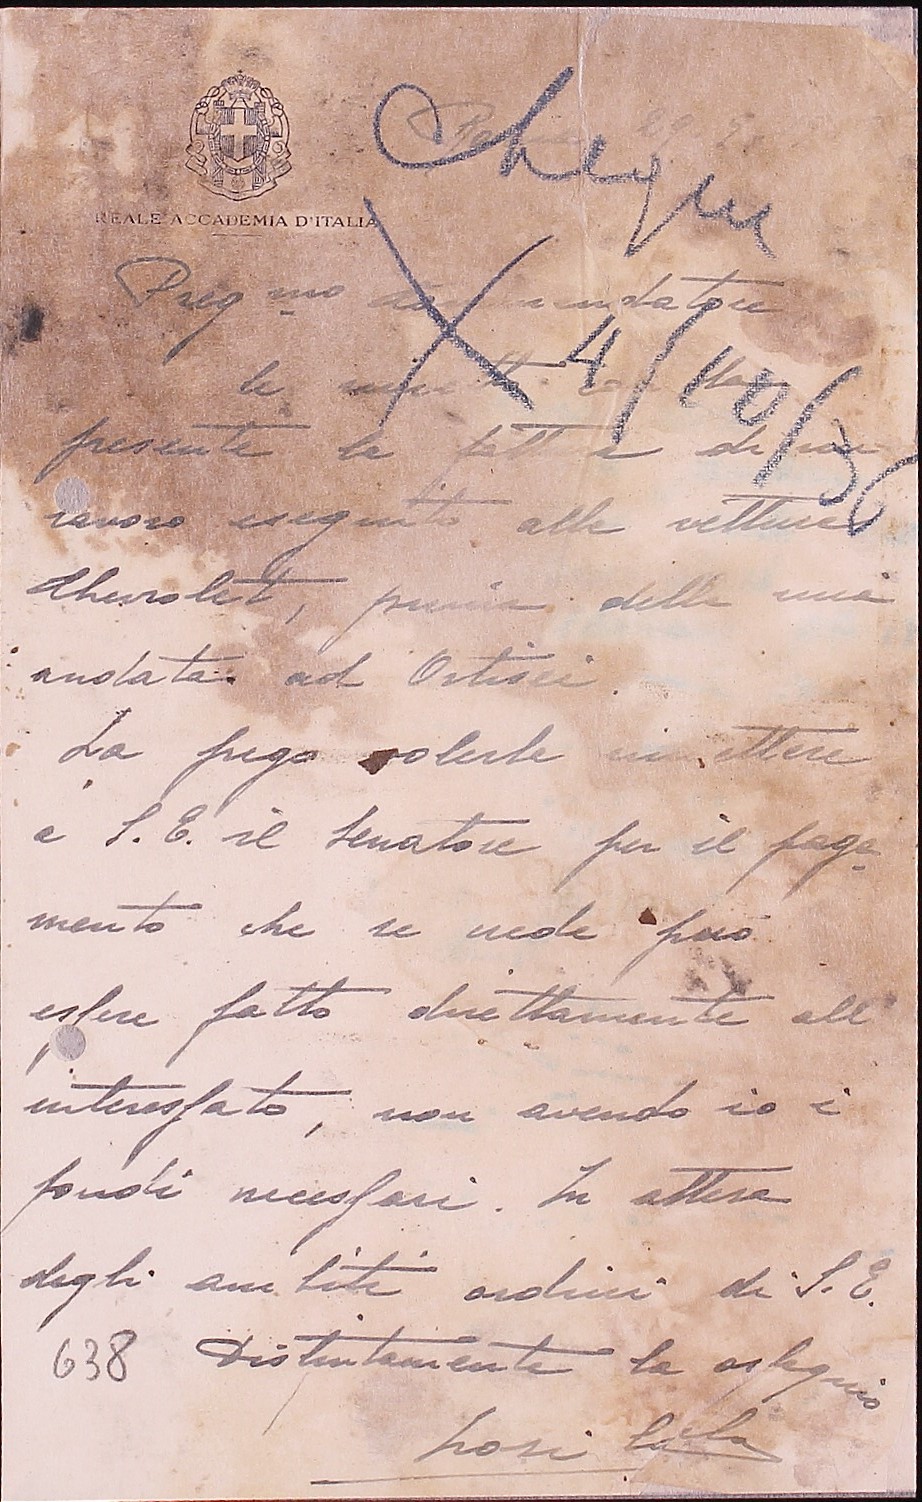 Cheque
REALE ACCADEMIA D'ITALIA
Preg mo commendatore
le
4/10/36
presente la fattura di un
lavoro eseguito alla vettura
Chevrolet, prima della sua
andata ad Ortisei.
La prego volerla rimettere
a S. E. il Senatore per il paga-
mento che se crede però
essere fatto direttamente all
interessato, non avendo io i
fondi necessari. In attesa
degli ambiti ordini di S. E.
638 Distintamente la ossequio
Losi